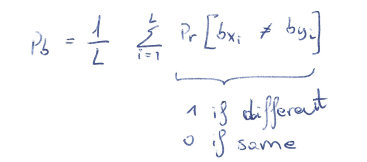 P_b = 1/L Σ_{i=1}^{L} Pr[b_{x_i} ≠ b_{y_i}]
1 if different
0 if same